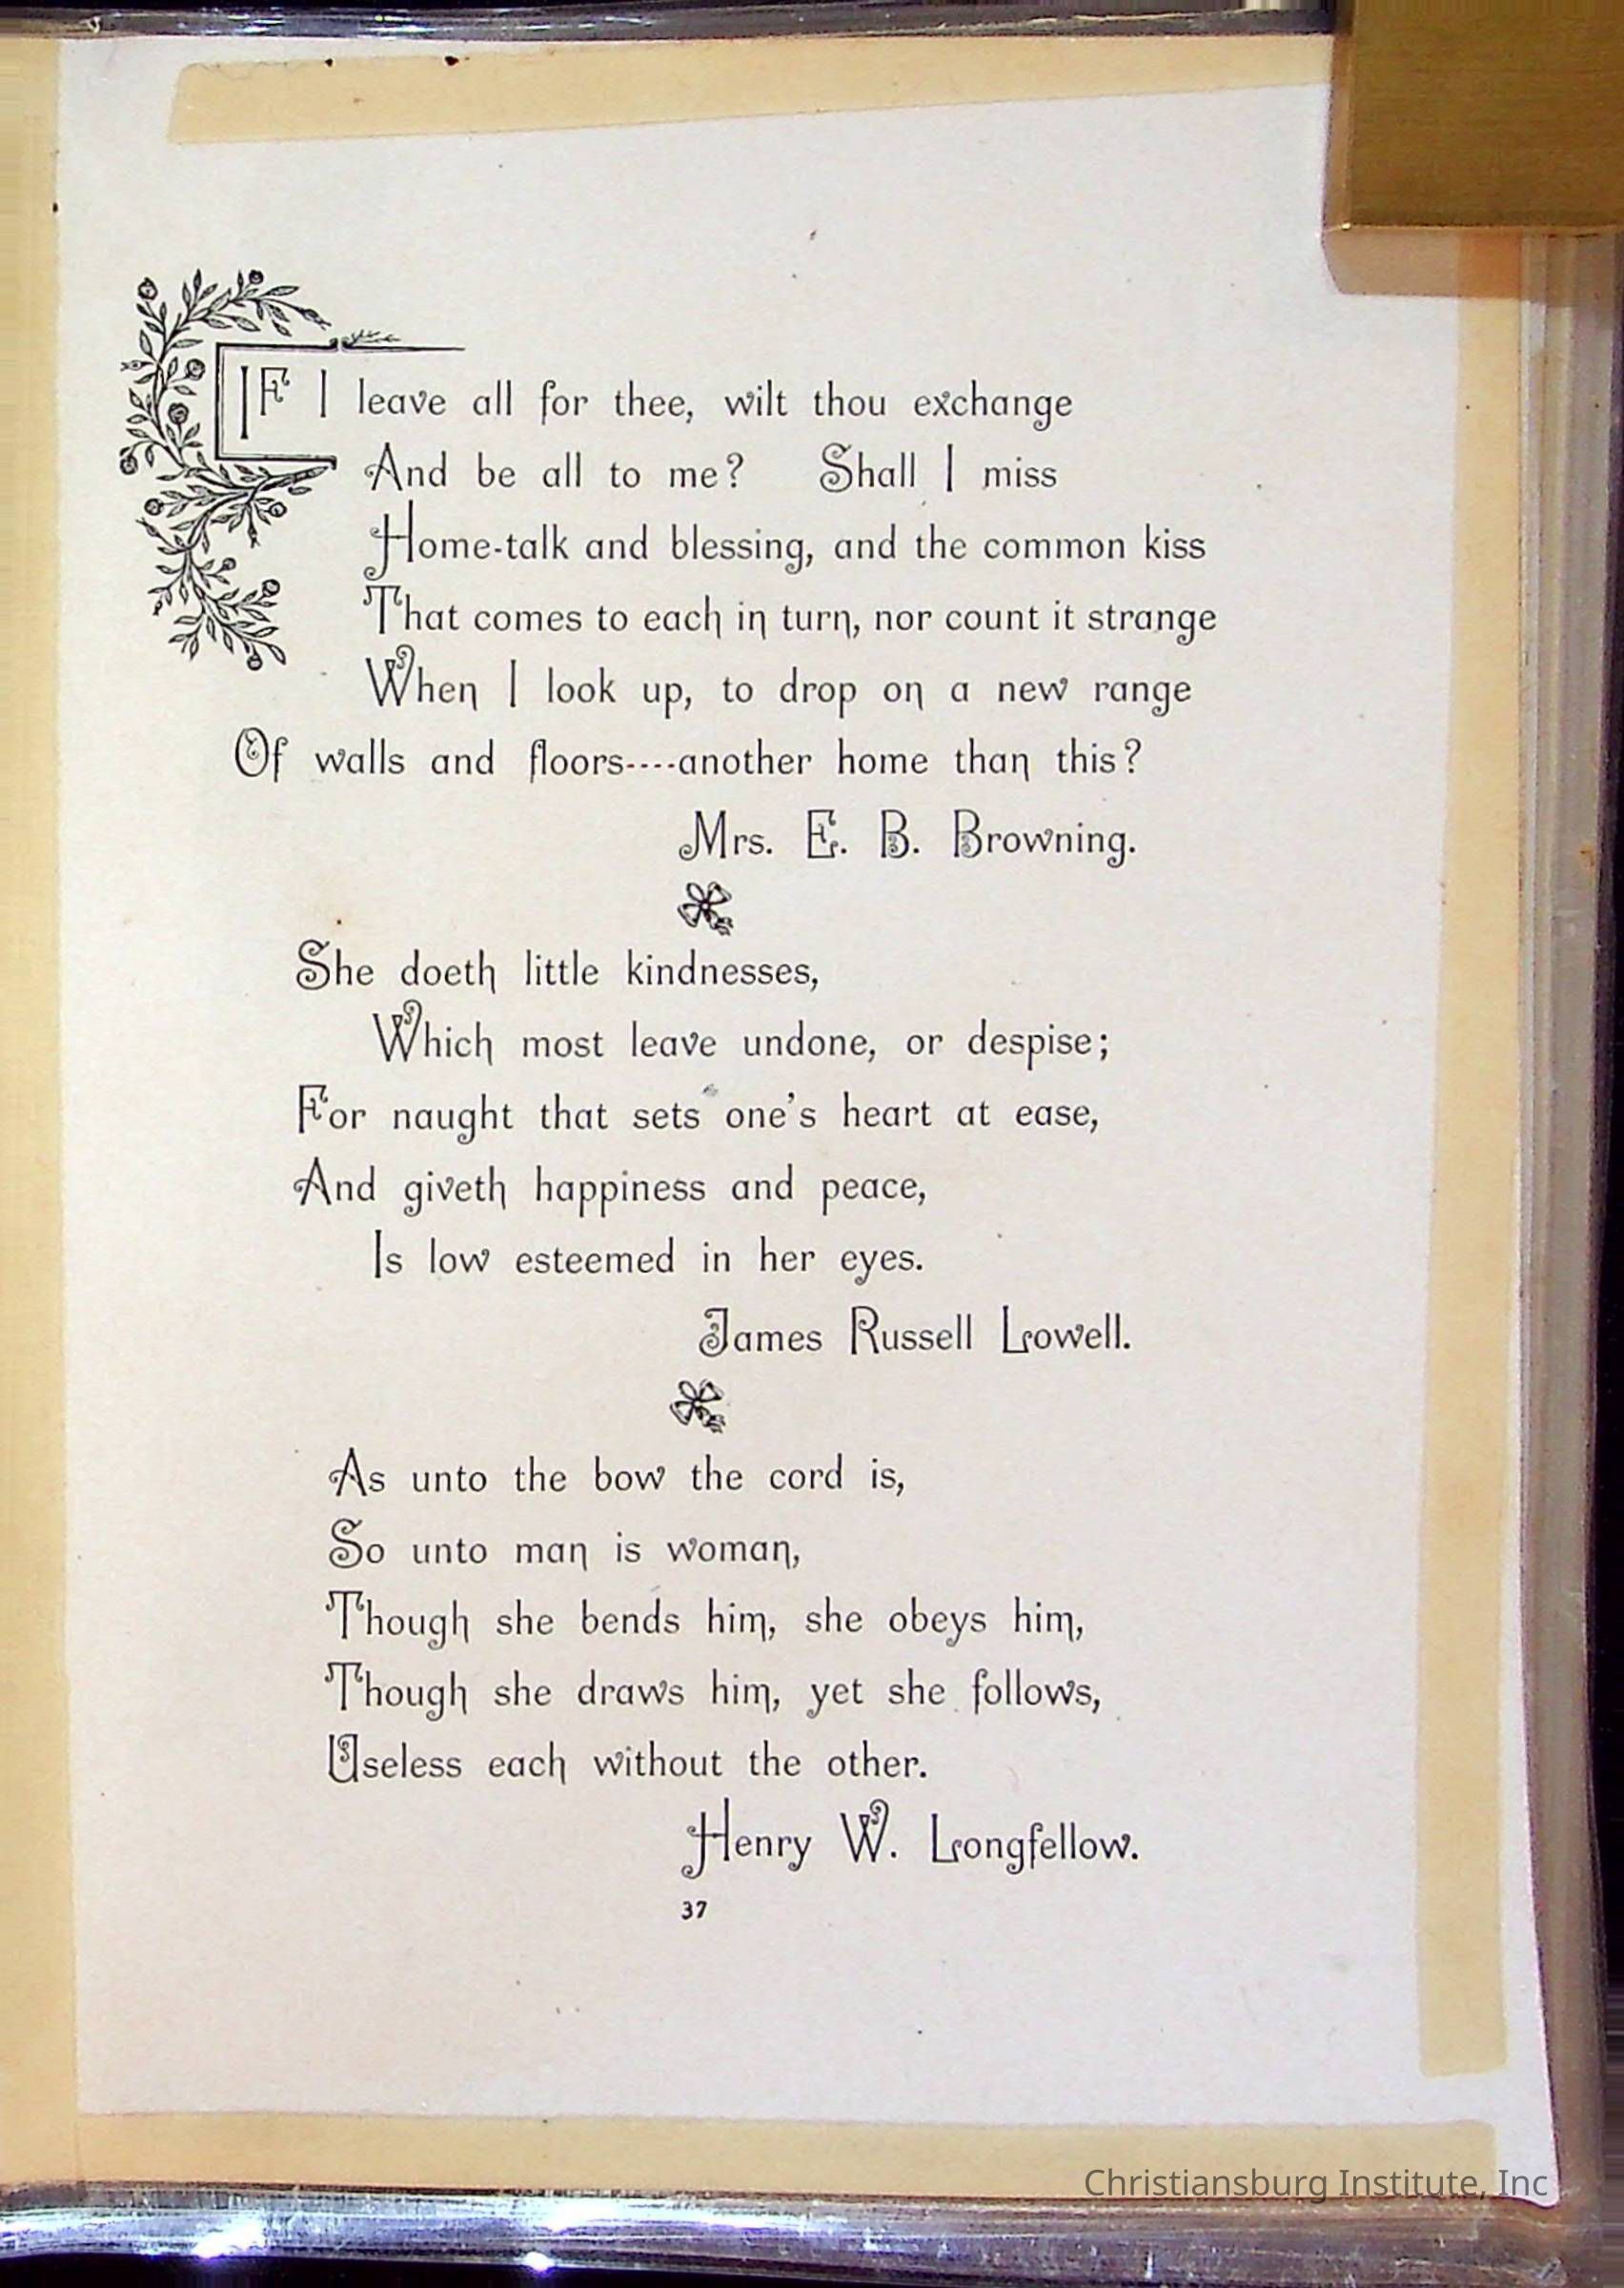 IF I leave all for thee, wilt thou exchange
And be all to me? Shall I miss
Home-talk and blessing, and the common kiss
That comes to each in turn, nor count it strange
When I look up, to drop on a new range
Of walls and floors----another home than this?
Mrs. E. B. Browning.
She doeth little kindnesses,
Which most leave undone, or despise;
For naught that sets one's heart at ease,
And giveth happiness and peace,
Is low esteemed in her eyes.
James Russell Lowell.
As unto the bow the cord is,
So unto man is woman,
Though she bends him, she obeys him,
Though she draws him, yet she follows,
Useless each without the other.
Henry W. Longfellow.
37
Christiansburg Institute, Inc